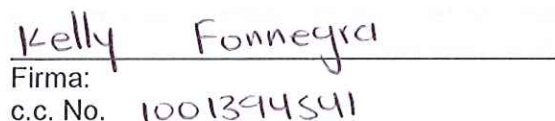 Kelly Fonnegra
Firma:
c.c. No. 1001394541